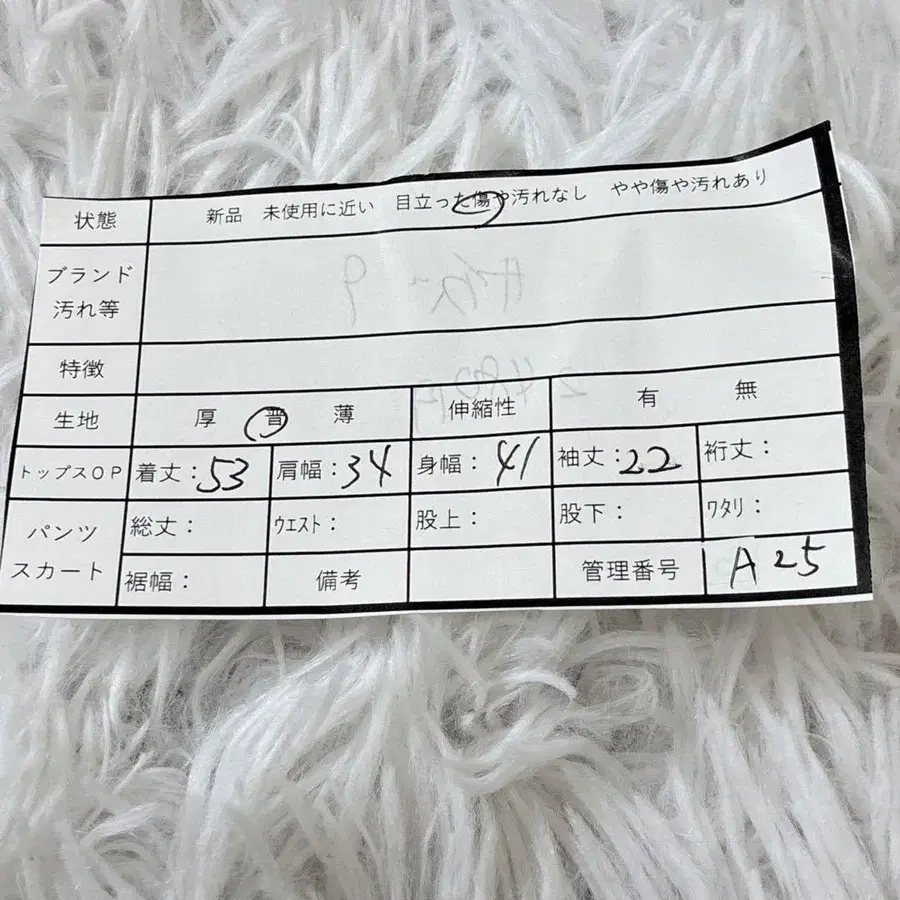 状態 新品 未使用に近い 目立った傷や汚れなし やや傷や汚れあり
ブランド
汚れ等
特徴
生地 厚 普 薄 伸縮性 有 無
トップスOP 着丈：53 肩幅：34 身幅：41 袖丈：22 裄丈：
パンツ
スカート
総丈： ウエスト： 股上： 股下： ワタリ：
裾幅： 備考 管理番号 A25